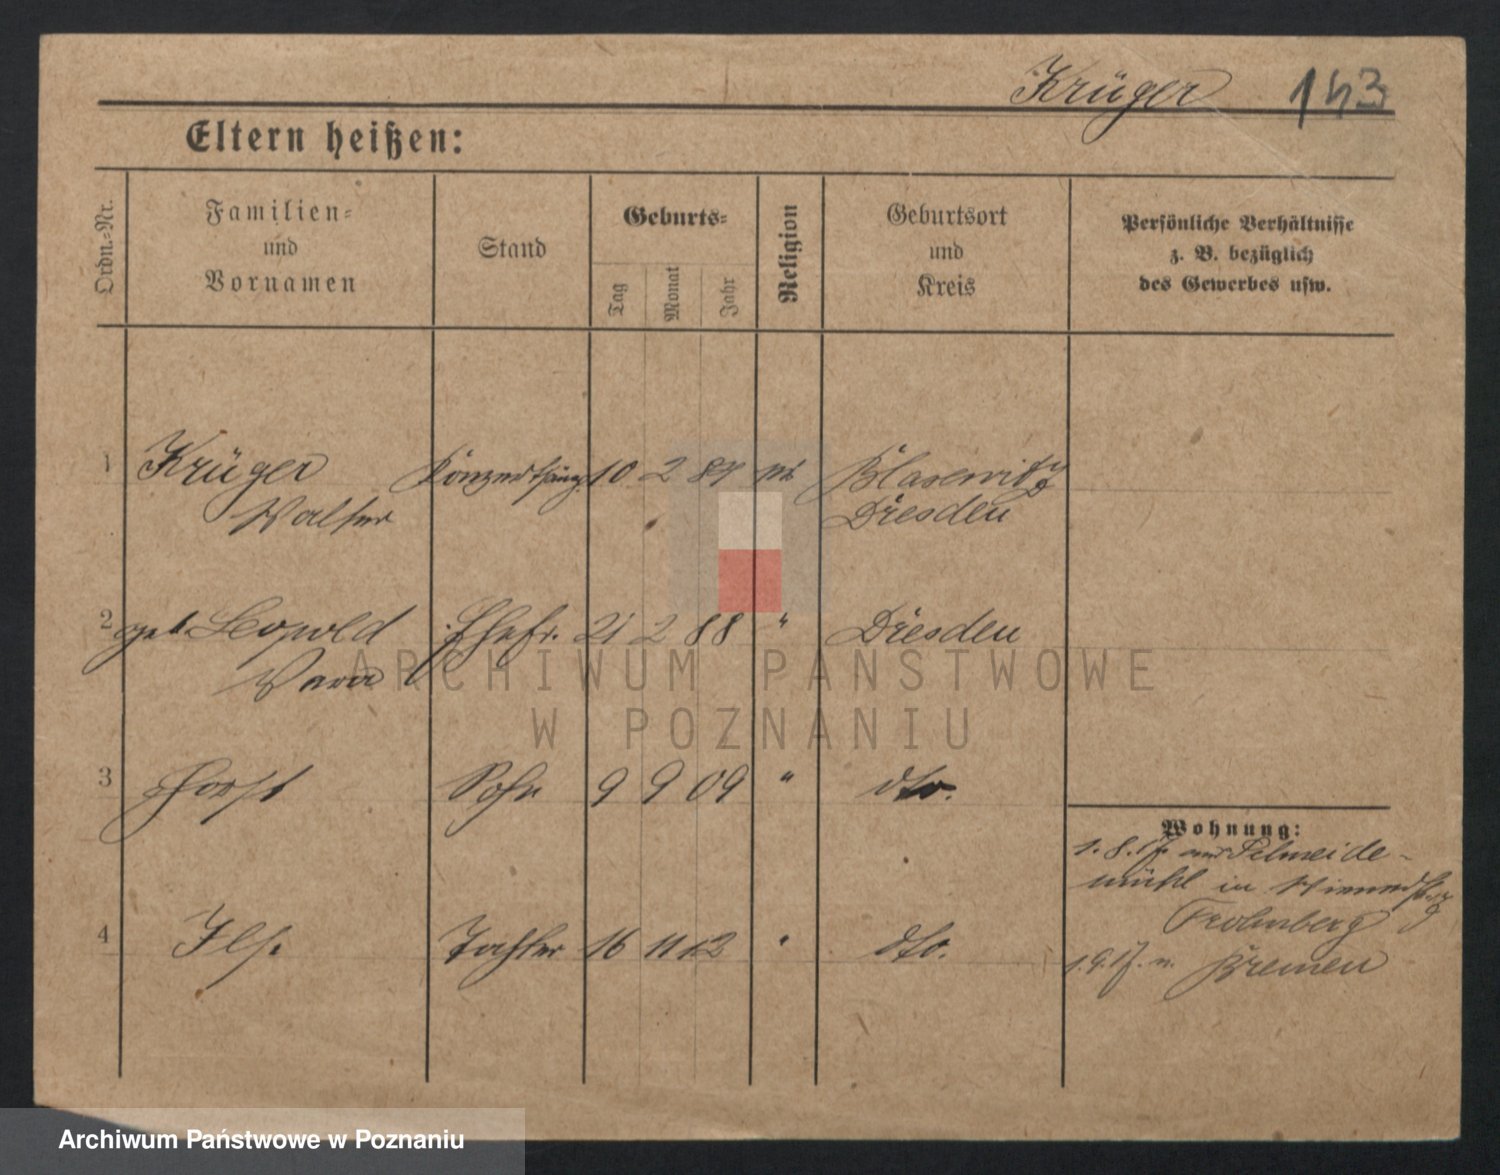 Krüger 143
Eltern heißen:
Ordn.-Nr.
Familien-
und
Vornamen
Stand
Geburts-
Tag
Monat
Jahr
Religion
Geburtsort
und
Kreis
Persönliche Verhältnisse
z. B. bezüglich
des Gewerbes usw.
1 Krüger Konzertsäng. 10 2 87 Blasewitz
Walter Dresden
2 geb. Leopold Ehefr. 21 2 88 " Dresden
3 Horst Sohn 9 9 09 " dto.
Wohnung:
1. 8. 17. aus Schneide-
mühl in
4 Ilse Tochter 16 11 12 " dto.
1. 9. 17. n. Bremen
ARCHIWUM PAŃSTWOWE
W POZNANIU
Archiwum Państwowe w Poznaniu